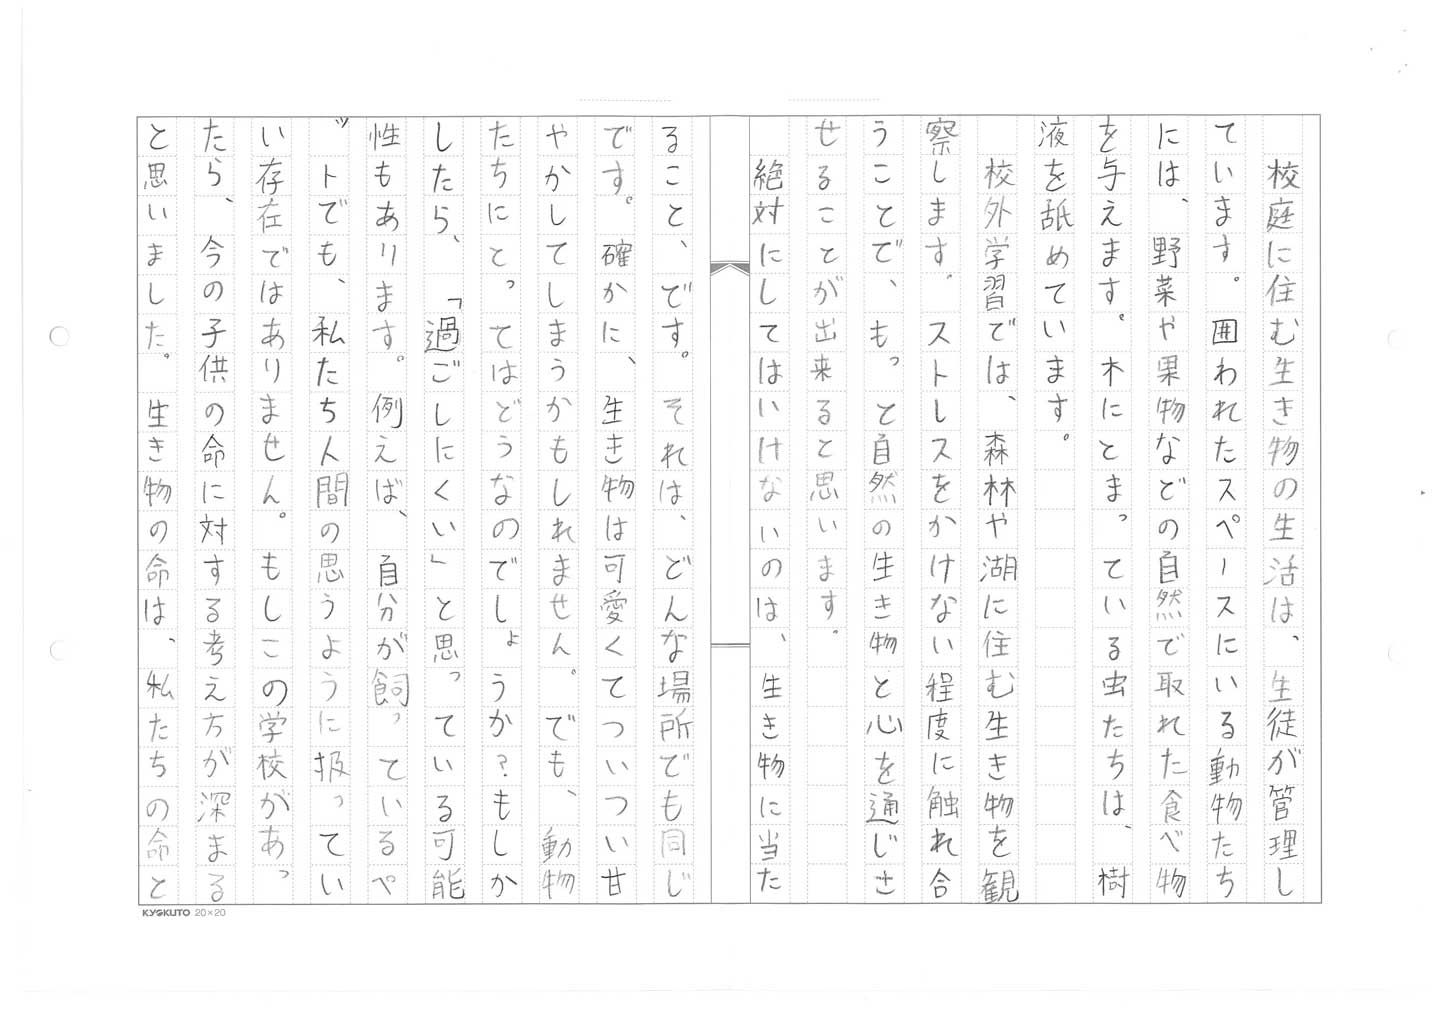 校庭に住む生き物の生活は、生徒が管理し
ています。囲われたスペースにいる動物たち
には、野菜や果物などの自然で取れた食べ物
を与えます。木にとまっている虫たちは、樹
液を舐めています。
　校外学習では、森林や湖に住む生き物を観
察します。ストレスをかけない程度に触れ合
うことで、もっと自然の生き物と心を通じさ
せることが出来ると思います。
　絶対にしてはいけないのは、生き物に当た
ること、です。それは、どんな場所でも同じ
です。確かに、生き物は可愛くてついつい甘
やかしてしまうかもしれません。でも、動物
たちにとってはどうなのでしょうか？もしか
したら、「過ごしにくい」と思っている可能
性もあります。例えば、自分が飼っているペ
ットでも、私たち人間の思うように扱ってい
い存在ではありません。もしこの学校があっ
たら、今の子供の命に対する考え方が深まる
と思いました。生き物の命は、私たちの命と
KYOKUTO 20×20